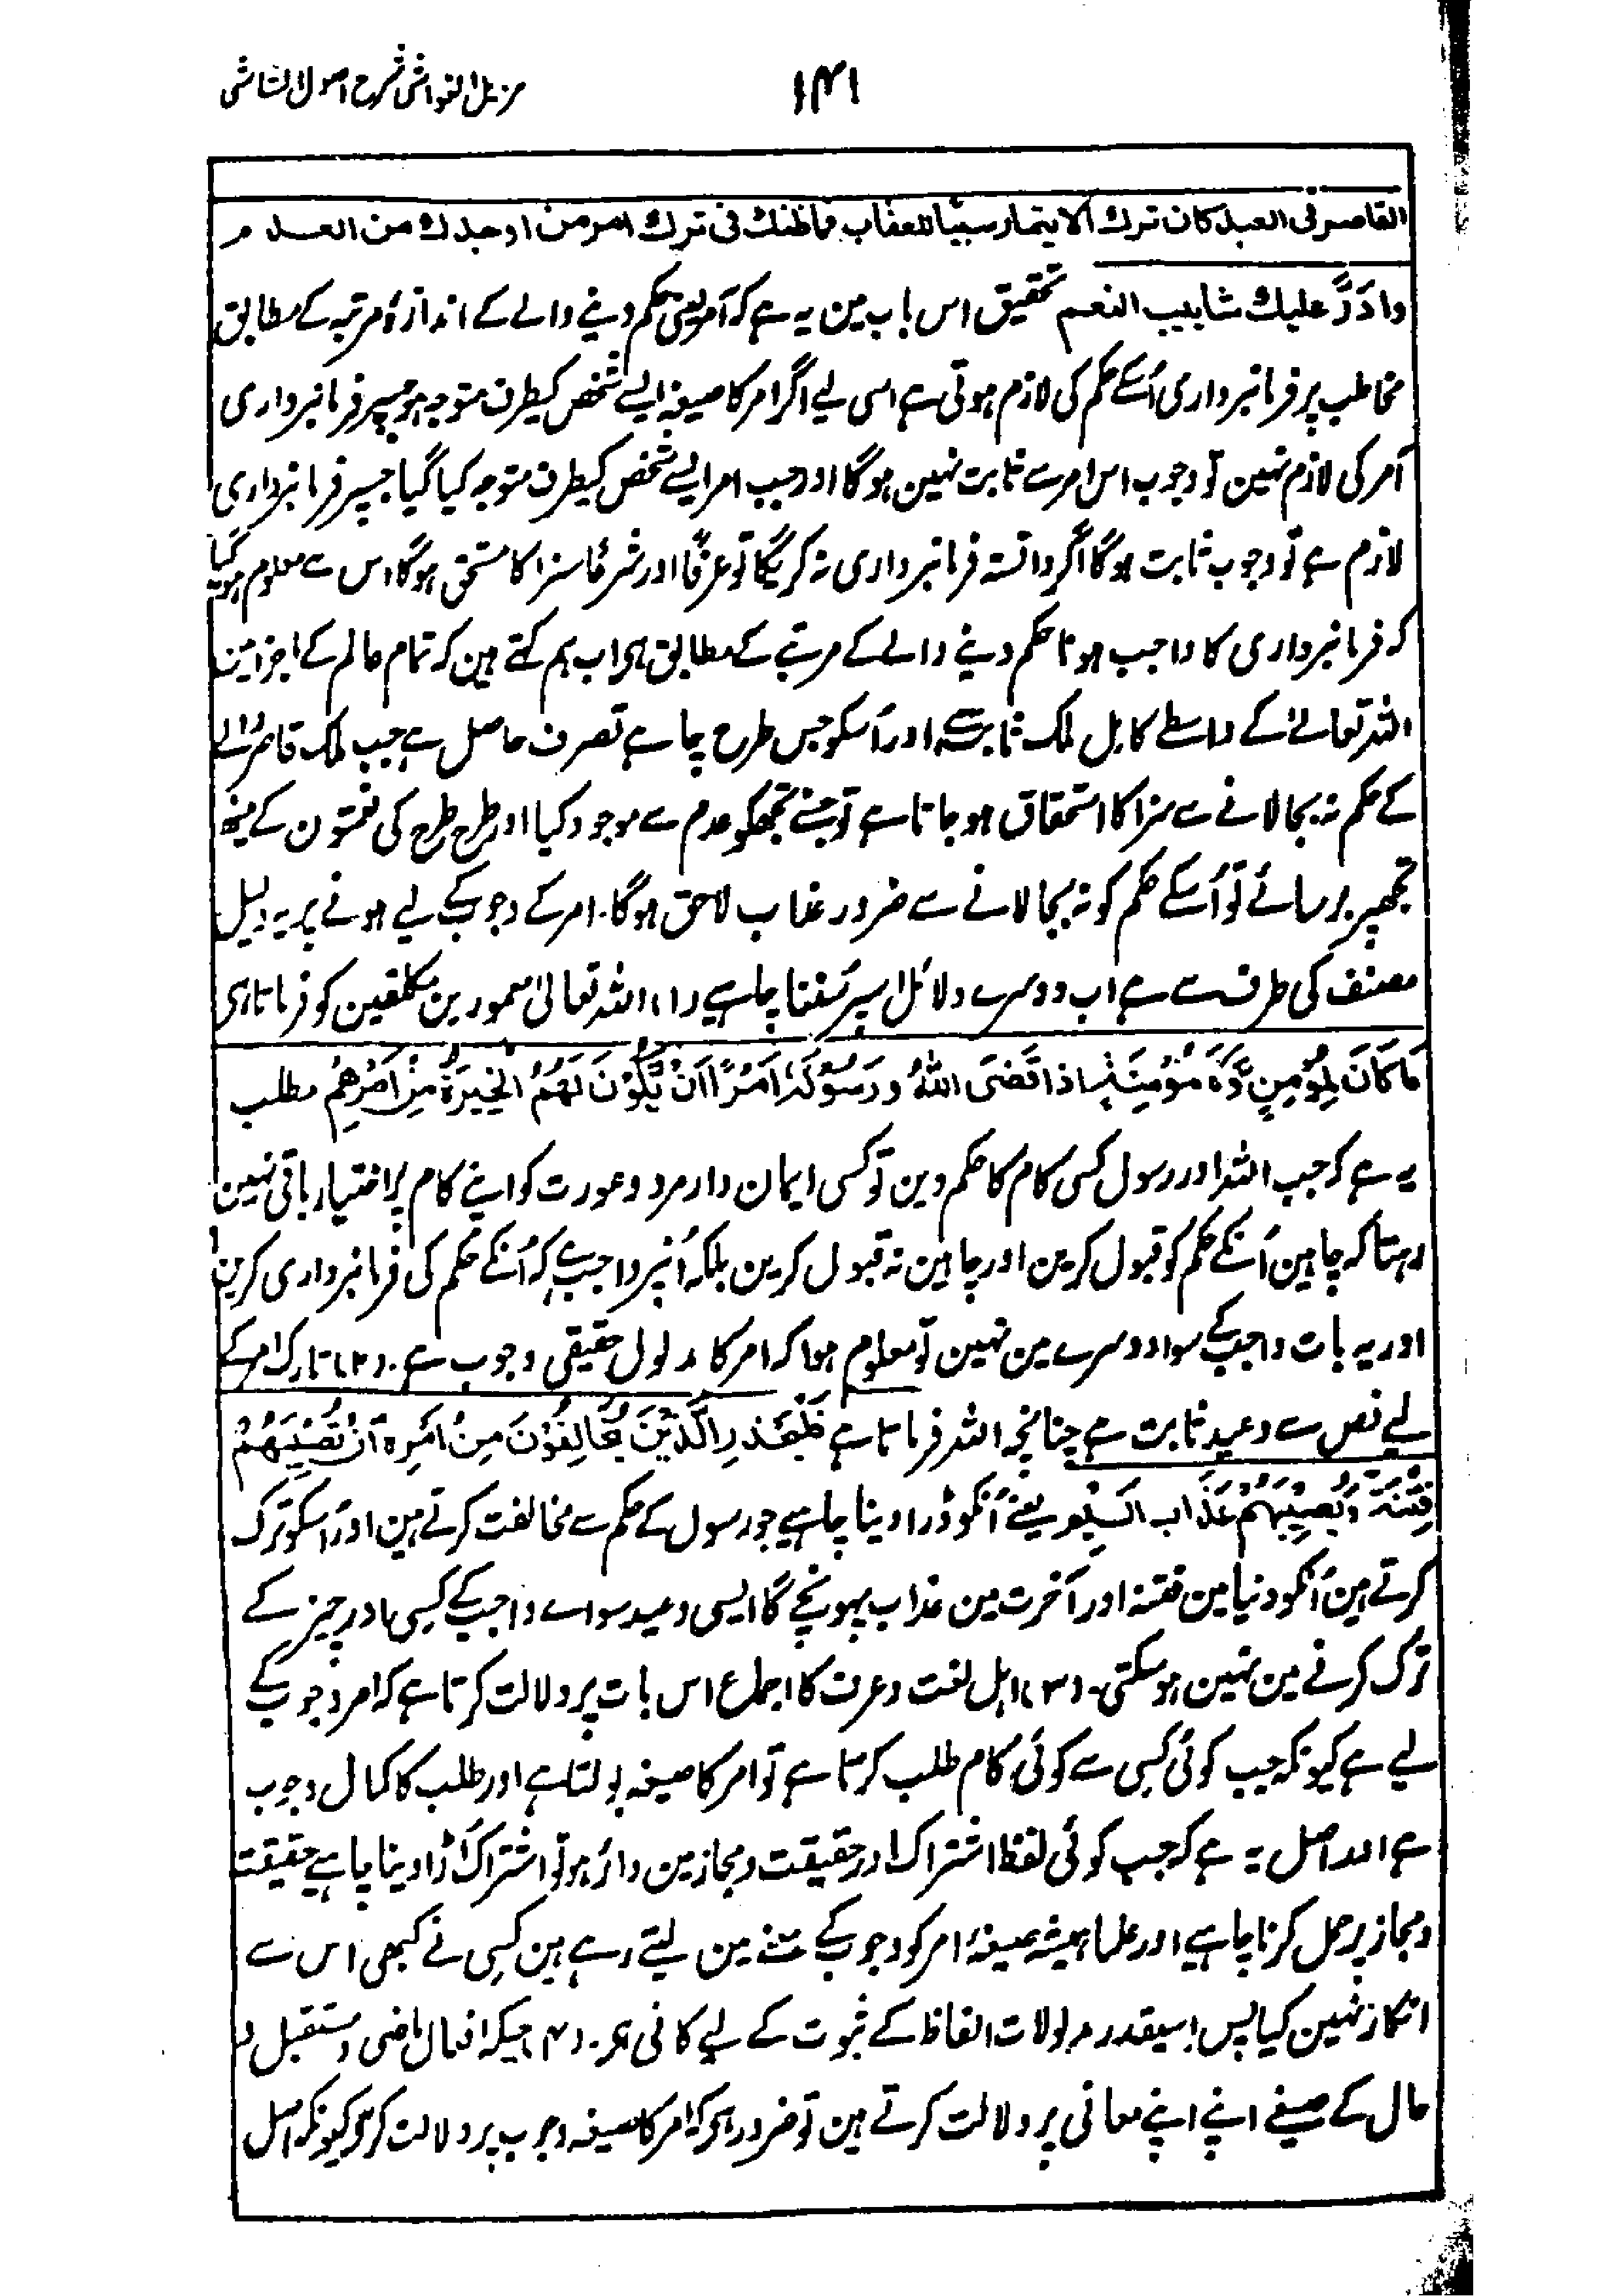 ۱۴۱
مزیل الغواشی شرح اصول الشاشی
القاصر فی العبد کان ترک الایتمار سببًا للعقاب فماظنک فی ترک امر من اوجدک من العدم
وادَرَّ علیک شاٰبیب النعم تحقیق اس باب مین یہ ہے کہ آمر یعنی حکم دینے والے کے اندازۂ مرتبہ کے مطابق
مخاطب پر فرمانبرداری اُسکے حکم کی لازم ہوتی ہے اسی لیے اگر امر کا صیغہ ایسے شخص کیطرف متوجہ ہو جسپر فرمانبرداری
آمر کی لازم نہین تو وجوب اس امر سے ثابت نہین ہوگا اور جب امر ایسے شخص کیطرف متوجہ کیا گیا جسپر فرمانبرداری
لازم ہے تو وجوب ثابت ہوگا اگر دانستہ فرمانبرداری نہ کریگا تو عرفًا اور شرعًا سزا کا مستحق ہوگا اس سے معلوم ہوگیا
کہ فرمانبرداری کا واجب ہونا حکم دینے والے کے مرتبے کے مطابق ہی اب ہم کہتے ہین کہ تمام عالم کے اجزا مین
اللہ تعالیٰ کے واسطے کامل ملک ثابت ہے اور اُسکو جس طرح چاہے تصرف حاصل ہے جب ملک قاصر والے
کے حکم نہ بجا لانے سے سزا کا استحقاق ہو جاتا ہے تو جسنے تجھکو عدم سے موجود کیا اور طرح طرح کی نعمتون کے مینھ
تجھپر برسائے تو اُسکے حکم کو نہ بجا لانے سے ضرور عذاب لاحق ہوگا۔ امر کے وجوب کے لیے ہونے پر یہ دلیل
مصنف کی طرف سے ہے اب دوسرے دلائل اسپر سُننا چاہیے (۱) اللہ تعالیٰ مامورین مکلفین کو فرماتا ہی
مَا کَانَ لِمُؤْمِنٍ وَّلَا مُؤْمِنَۃٍ اذا قَضَی اللّٰہُ وَرَسُوْلُہٗ اَمْرًا اَنْ یَّکُوْنَ لَھُمُ الْخِیَرَۃُ مِنْ اَمْرِھِمْ مطلب
یہ ہے کہ جب اللہ اور رسول کسی کام کا حکم دین تو کسی ایمان دار مرد و عورت کو اپنے کام پر اختیار باقی نہین
رہتا کہ چاہین اُنکے حکم کو قبول کرین اور چاہین نہ قبول کرین بلکہ اُنپر واجب ہے کہ اُنکے حکم کی فرمانبرداری کرین
اور یہ بات واجب کے سوا دوسرے مین نہین تو معلوم ہوا کہ امر کا مدلول حقیقی وجوب ہے۔ (۲) تارک امر کے
لیے نص سے وعید ثابت ہے چنانچہ اللہ فرماتا ہے فَلْیَحْذَرِ الَّذِیْنَ یُخَالِفُوْنَ مِنْ اَمْرِہٖ اَنْ تُصِیْبَھُمْ
فِتْنَۃٌ وَیُصِیْبَھُمْ عَذَاب اَلِیْم یعنے اُنکو ڈرا دینا چاہیے جو رسول کے حکم سے مخالفت کرتے ہین اور اُسکو ترک
کرتے ہین اُنکو دنیا مین فتنہ اور آخرت مین عذاب پہونچے گا ایسی وعید سواے واجب کے کسی اور چیز کے
ترک کرنے مین نہین ہوسکتی۔ (۳) اہل لغت و عرف کا اجماع اس بات پر دلالت کرتا ہے کہ امر وجوب کے
لیے ہے کیونکہ جب کوئی کسی سے کوئی کام طلب کرتا ہے تو امر کا صیغہ بولتا ہے اور طلب کا کمال وجوب
ہے اور اصل یہ ہے کہ جب کوئی لفظ اشتراک اور حقیقت و مجاز مین دائر ہو تو اشتراک اُڑا دینا چاہیے حقیقت
و مجاز پر حمل کرنا چاہیے اور علما ہمیشہ صیغۂ امر کو وجوب کے معنے مین لیتے رہے ہین کسی نے کبھی اس سے
انکار نہین کیا پس اسیقدر مدلولات الفاظ کے ثبوت کے لیے کافی ہی۔ (۴) جبکہ افعال ماضی و مستقبل و
حال کے صیغے اپنے اپنے معانی پر دلالت کرتے ہین تو ضرور ہی کہ امر کا صیغہ وجوب پر دلالت کرے کیونکہ اصل